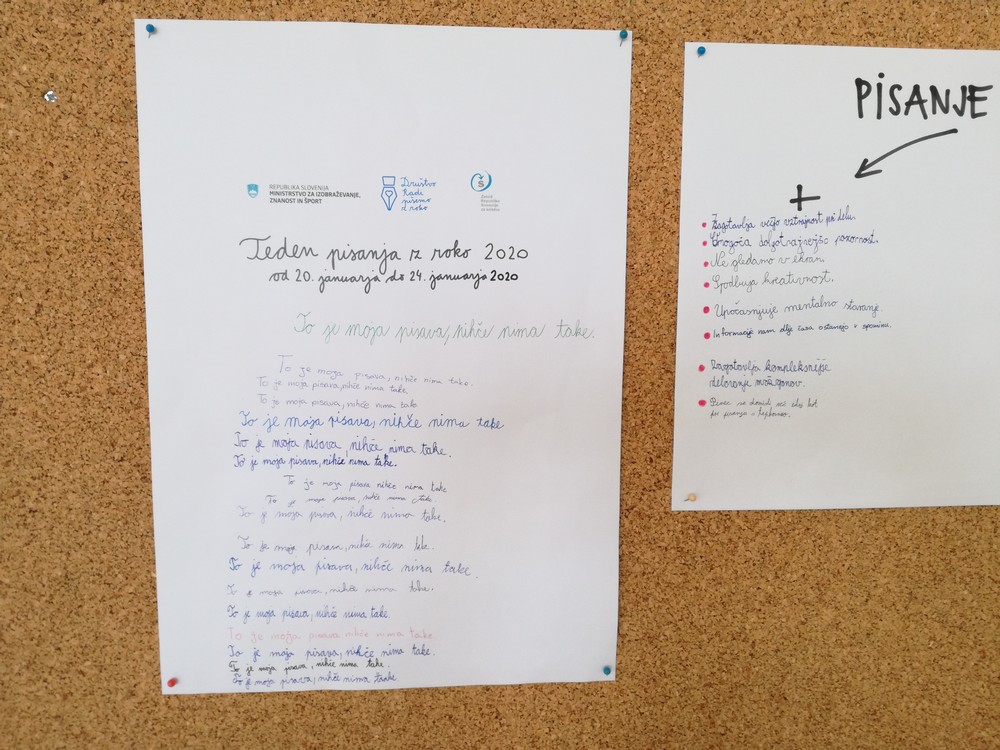 REPUBLIKA SLOVENIJA
MINISTRSTVO ZA IZOBRAŽEVANJE,
ZNANOST IN ŠPORT
Društvo
Radi
pišemo
z roko
Teden pisanja z roko 2020
od 20. januarja do 24. januarja 2020
To je moja pisava, nihče nima take.
To je moja pisava, nihče nima take.
To je moja pisava, nihče nima take.
To je moja pisava, nihče nima take.
To je moja pisava, nihče nima take
To je moja pisava, nihče nima take.
To je moja pisava, nihče nima take.
To je moja pisava nihče nima take
To je moja pisava, nihče nima take
To je moja pisava, nihče nima take.
To je moja pisava, nihče nima take.
To je moja pisava, nihče nima take.
To je moja pisava, nihče nima take.
To je moja pisava, nihče nima take
To je moja pisava nihče nima take
To je moja pisava, nihče nima take.
To je moja pisava, nihče nima take.
To je moja pisava, nihče nima take
PISANJE
+
Zagotavlja večjo vztrajnost pri delu
Omogoča dolgotrajnejšo pozornost.
Ne gledamo v ekran.
Spodbuja kreativnost.
Upočasnjuje mentalno staranje
Informacije nam dlje časa ostanejo v spominu.
Zagotavlja kompleksnejše
delovanje možganov.